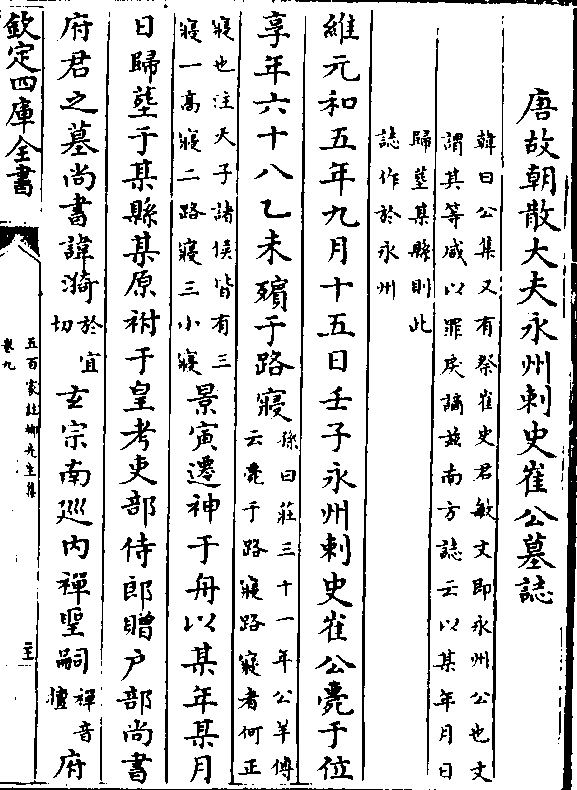 唐故朝散大夫永州刺史崔公墓誌
韓曰公集又有祭崔史君敏文即永州公也文
謂某等咸以罪戾謫茲南方誌云以某年月日
歸塟某縣則此
誌作於永州
維元和五年九月十五日壬子永州刺史崔公薨于位
享年六十八乙未殯于路寢
孫曰莊三十一年公羊傳
云薨于路寢路寢者何正
寢也注天子諸侯皆有三
寢一高寢二路寢三小寢
景寅遷神于舟以某年某月
日歸塟于某縣某原祔于皇考吏部侍郎贈户部尚書
府君之墓尚書諱漪
於宜
切
玄宗南巡内禪聖嗣
禪音
檀
府
欽定四庫全書
五百家註柳先生集
卷九